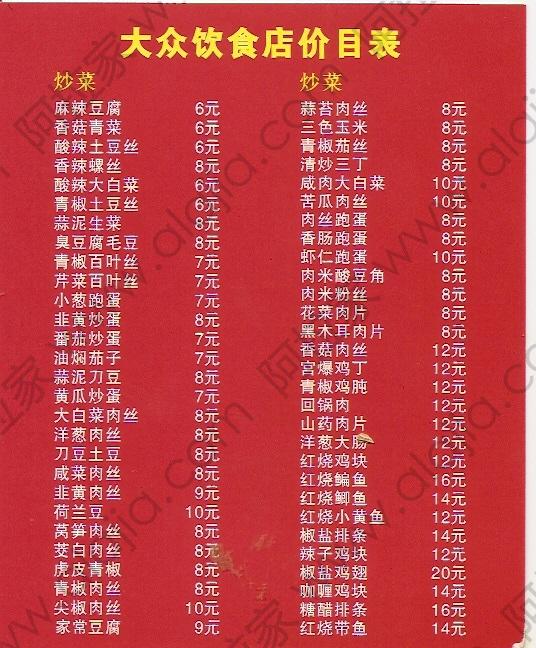 大众饮食店价目表
炒菜
麻辣豆腐 6元
香菇青菜 6元
酸辣土豆丝 6元
香辣螺丝 8元
酸辣大白菜 6元
青椒土豆丝 6元
蒜泥生菜 8元
臭豆腐毛豆 8元
青椒百叶丝 7元
芹菜百叶丝 7元
小葱跑蛋 7元
韭黄炒蛋 8元
番茄炒蛋 7元
油焖茄子 7元
蒜泥刀豆 8元
黄瓜炒蛋 7元
大白菜肉丝 8元
洋葱肉丝 8元
刀豆土豆 8元
咸菜肉丝 8元
韭黄肉丝 9元
荷兰豆 10元
莴笋肉丝 8元
茭白肉丝 8元
虎皮青椒 8元
青椒肉丝 8元
尖椒肉丝 10元
家常豆腐 9元
炒菜
蒜苔肉丝 8元
三色玉米 8元
青椒茄丝 8元
清炒三丁 8元
咸肉大白菜 10元
苦瓜肉丝 10元
肉丝跑蛋 8元
香肠跑蛋 8元
虾仁跑蛋 10元
肉米酸豆角 8元
肉米粉丝 8元
花菜肉片 8元
黑木耳肉片 8元
香菇肉丝 12元
宫爆鸡丁 12元
青椒鸡肫 12元
回锅肉 12元
山药肉片 12元
洋葱大肠 12元
红烧鸡块 12元
红烧鳊鱼 16元
红烧鲫鱼 14元
红烧小黄鱼 12元
椒盐排条 14元
辣子鸡块 12元
椒盐鸡翅 20元
咖喱鸡块 14元
糖醋排条 16元
红烧带鱼 14元
阿拉家 www.alajia.com